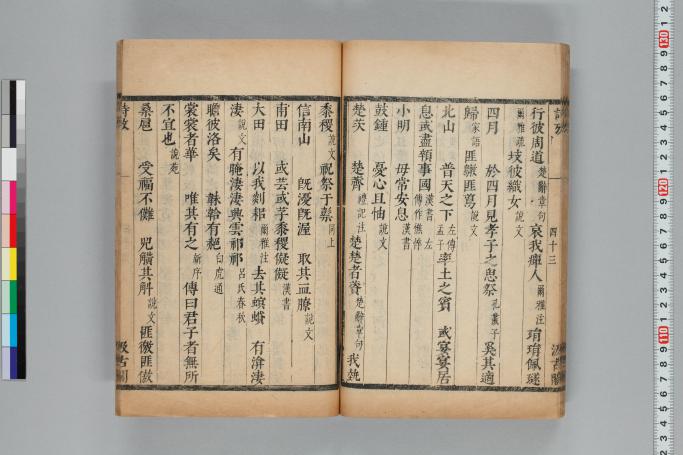 行彼周道楚辭章句哀我癉人爾雅注琄琄佩璲
爾雅疏歧彼織女說文
四月　於四月見孝子之思祭孔叢子奚其適
歸家語匪鷻匪䳒說文
北山　普天之下左傳孟子率土之賓　或宴宴居
息或盡領事國漢書左傳作憔悴
小明　毋常安息漢書
鼓鍾　憂心且怞說文
楚茨　楚薺禮記注楚楚者薋楚辭章句我蓺
四十三
黍稷說文祝祭于䃾同上
信南山　旣瀀旣渥　取其血膫說文
甫田　或芸或芓黍稷儗儗漢書
大田　以我剡耜爾雅注去其螟蟘　有渰淒
淒說文有晻淒淒興雲祁祁呂氏春秋
瞻彼洛矣　韎韐有赩白虎通
裳裳者華　唯其有之新序傳曰君子者無所
不宜也說苑
桑扈　受福不儺　兕觵其觓說文匪徼匪傲
詩攷
汲古閣